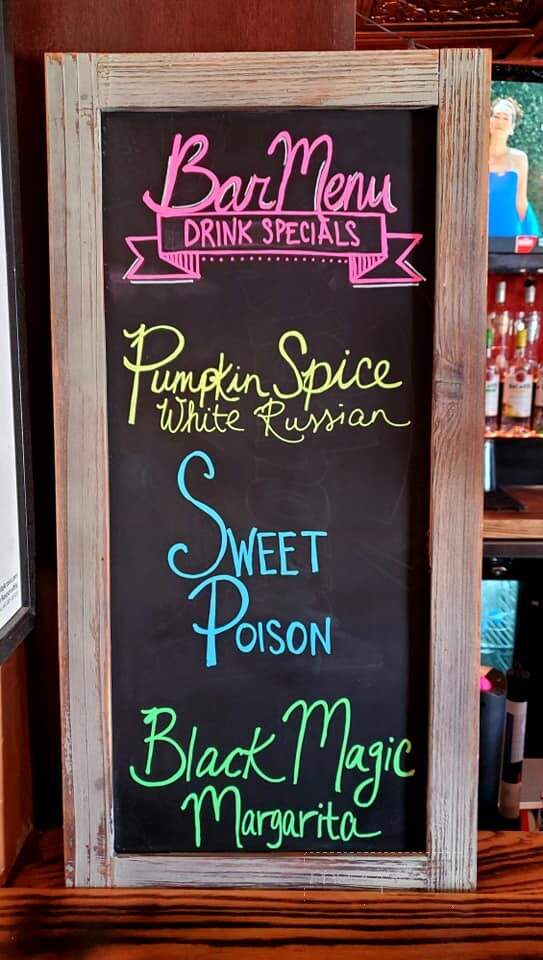 Bar Menu
DRINK SPECIALS
Pumpkin Spice
White Russian
SWEET
POISON
Black Magic
Margarita